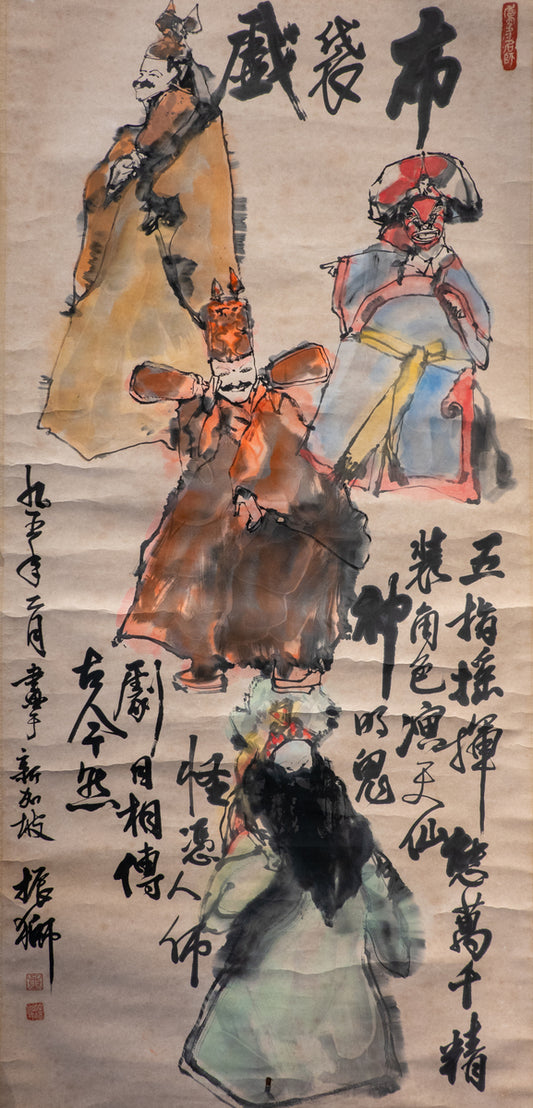 布袋戲
五指搖揮態萬千精
裝角色演天仙
神明鬼
怪憑人佈
劇目相傳
古今然
九五年二月 于新加坡 振獅